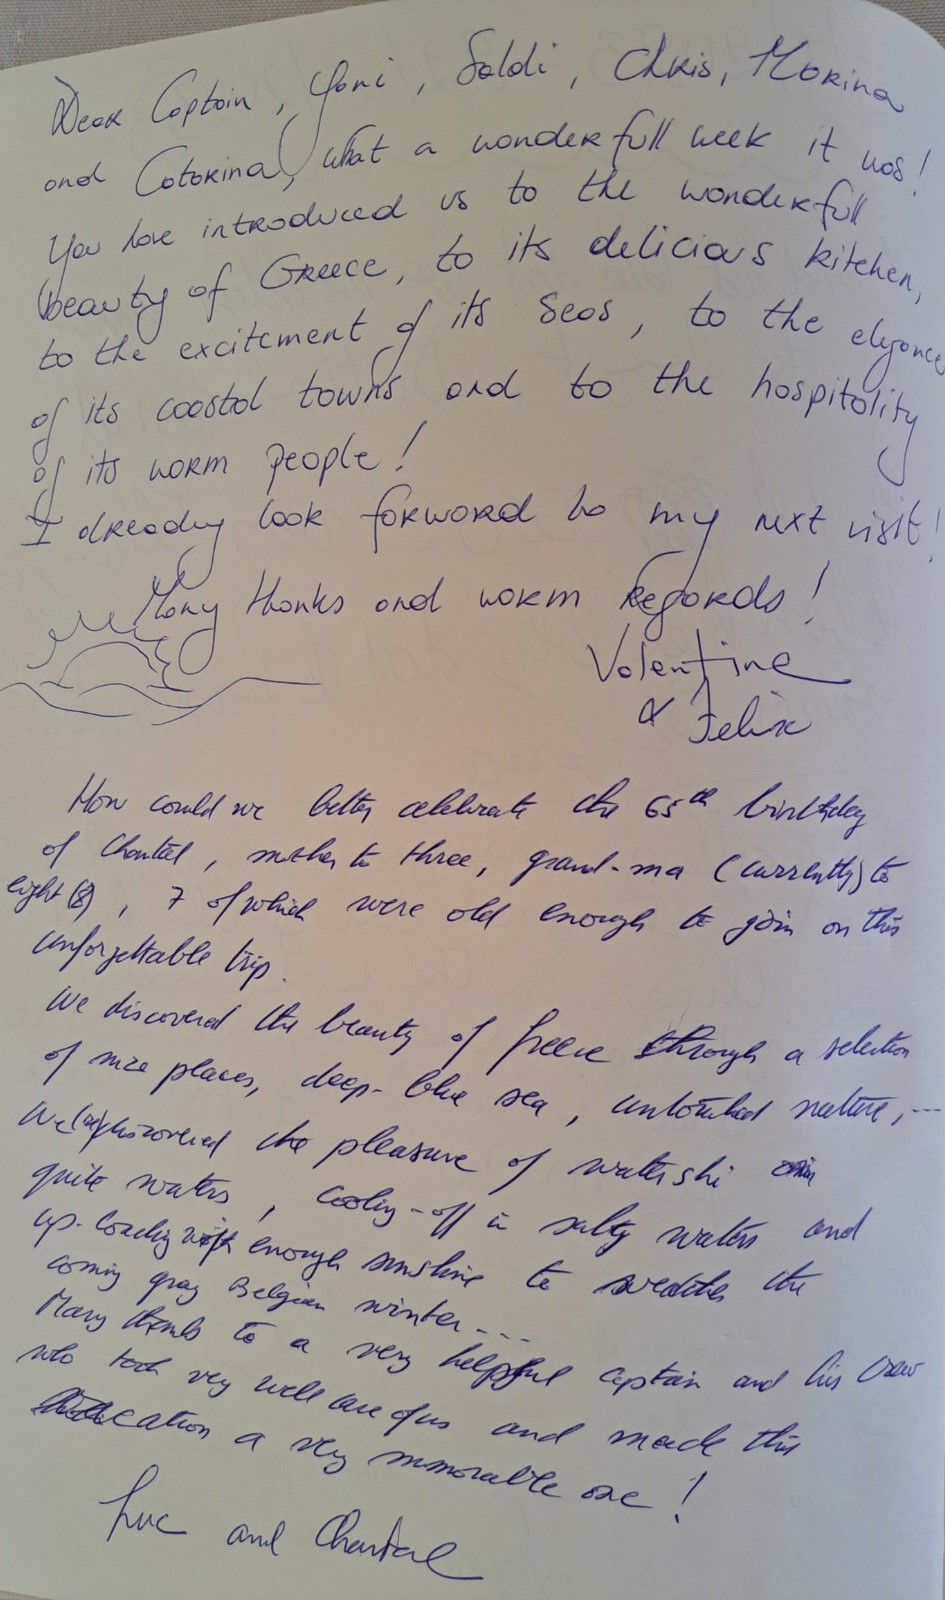 Dear Captain, Yoni, Saldi, Chris, Marina
and Catarina, what a wonderfull week it was!
You have introduced us to the wonderfull
beauty of Greece, to its delicious kitchen,
to the excitement of its seas, to the elegance
of its coastal towns and to the hospitality
of its warm people!
I already look forward to my next visit!
Many thanks and warm regards!
Valentine
& Felix
How could we better celebrate the 65th birthday
of Chantal, mother to three, grand-ma (currently) to
eight (8), 7 of which were old enough to join on this
unforgettable trip.
We discovered the beauty of Greece through a selection
of nice places, deep-blue sea, untouched nature, ...
We (re)discovered the pleasure of waterski in
quite waters, cooling-off in salty waters and
up-loading with enough sunshine to the
coming gray Belgian winter...
Many thanks to a very helpful captain and his crew
who took very well care of us and made this
a very memorable one!
Luc and Chantal